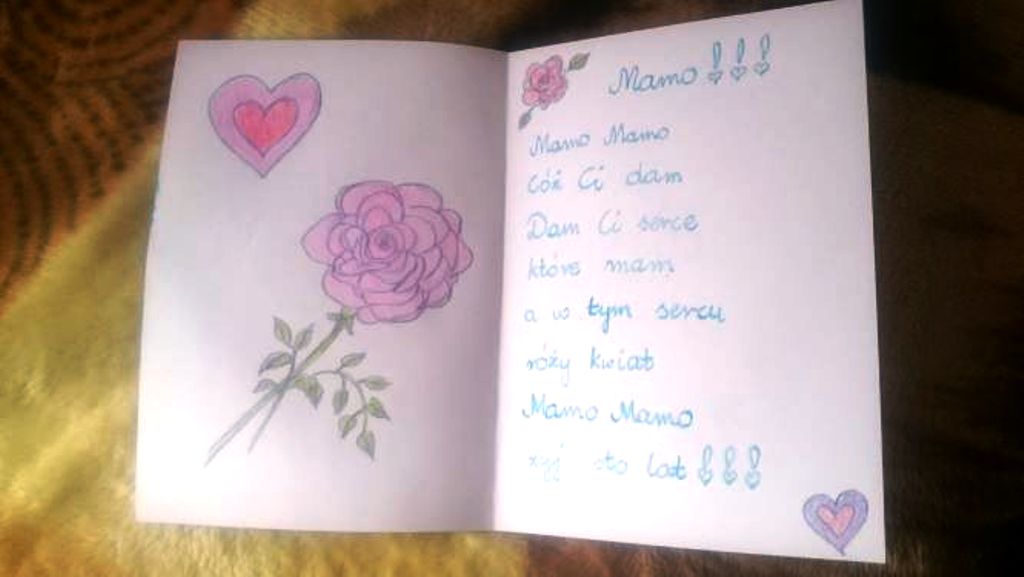 Mamo !!!
Mamo Mamo
Cóż Ci dam
Dam Ci serce
które mam
a w tym sercu
róży kwiat
Mamo Mamo
żyj sto lat !!!